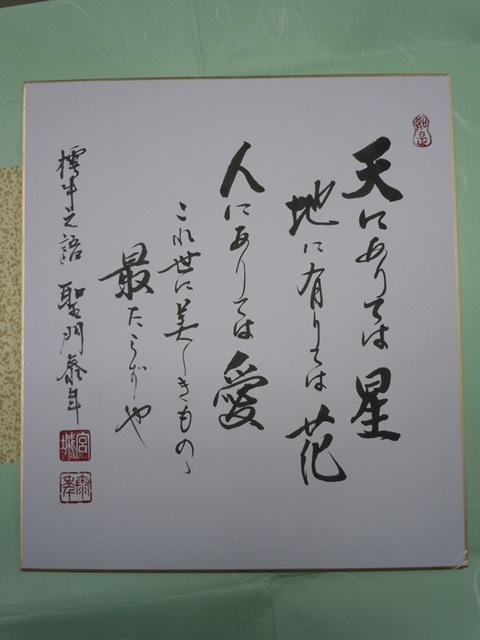 如是
天にありては星
地に有りては花
人にありては愛
これ世に美しきものゝ
最たらずや
樗牛之語 聖門泰年
宮城
泰年